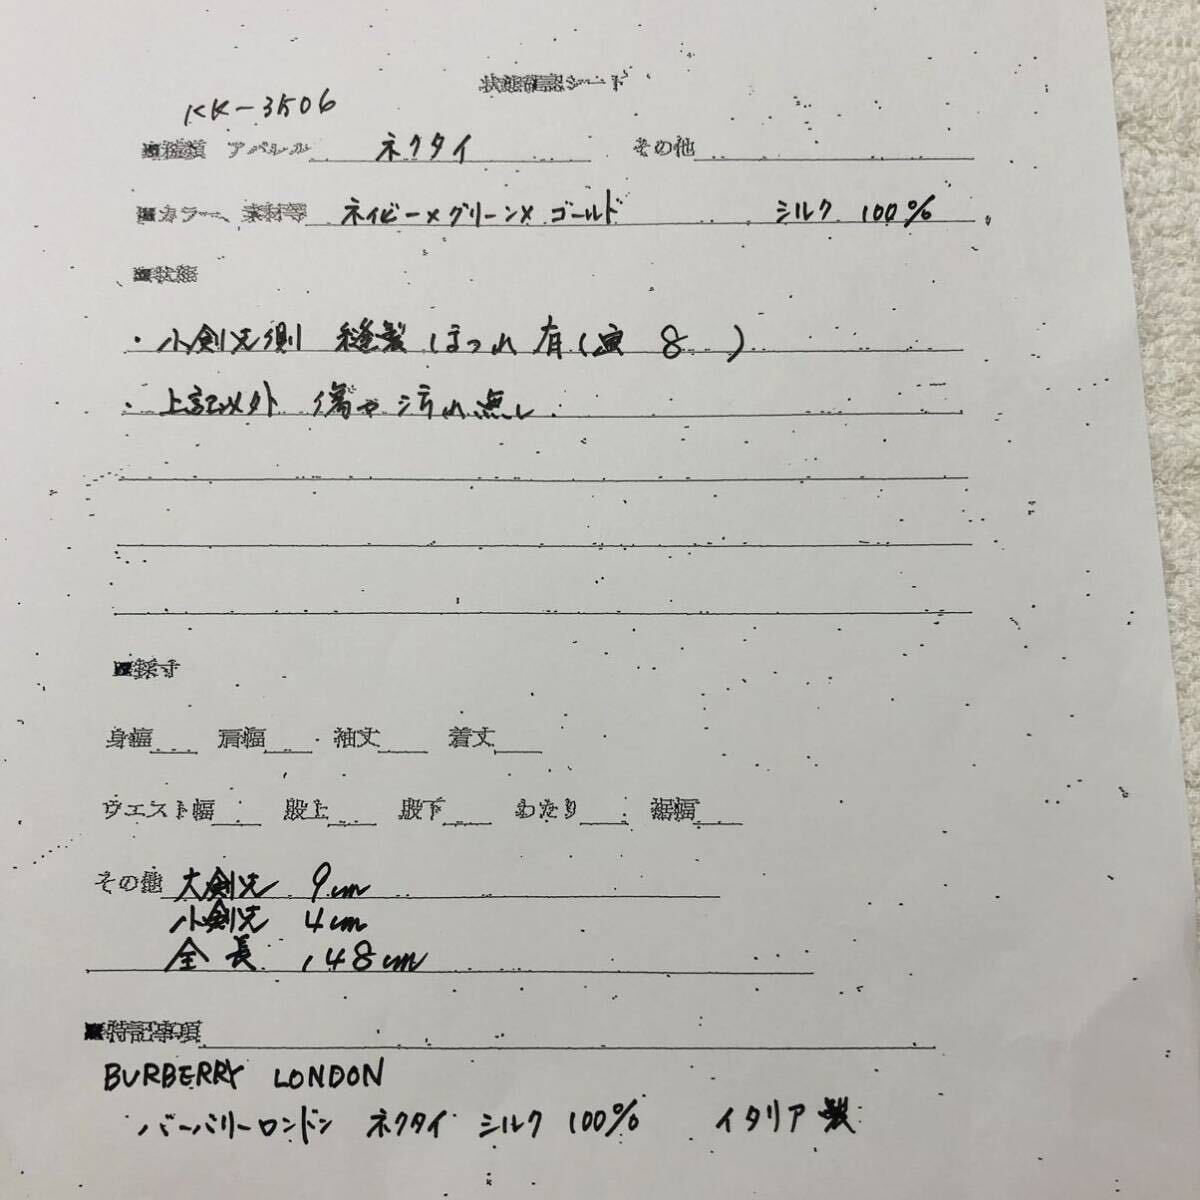 状態確認シート
KK-3506
■種類 アパレル ネクタイ その他
■カラー、素材等 ネイビー×グリーン×ゴールド シルク 100%
■状態
・小剣先側 縫製 ほつれ 有(画 8 )
・上記以外 傷や汚れ無し
■採寸
身幅 肩幅 袖丈 着丈
ウエスト幅 股上 股下 わたり 裾幅
その他 大剣先 9cm
小剣先 4cm
全長 148cm
■特記事項
BURBERRY LONDON
バーバリーロンドン ネクタイ シルク 100% イタリア製